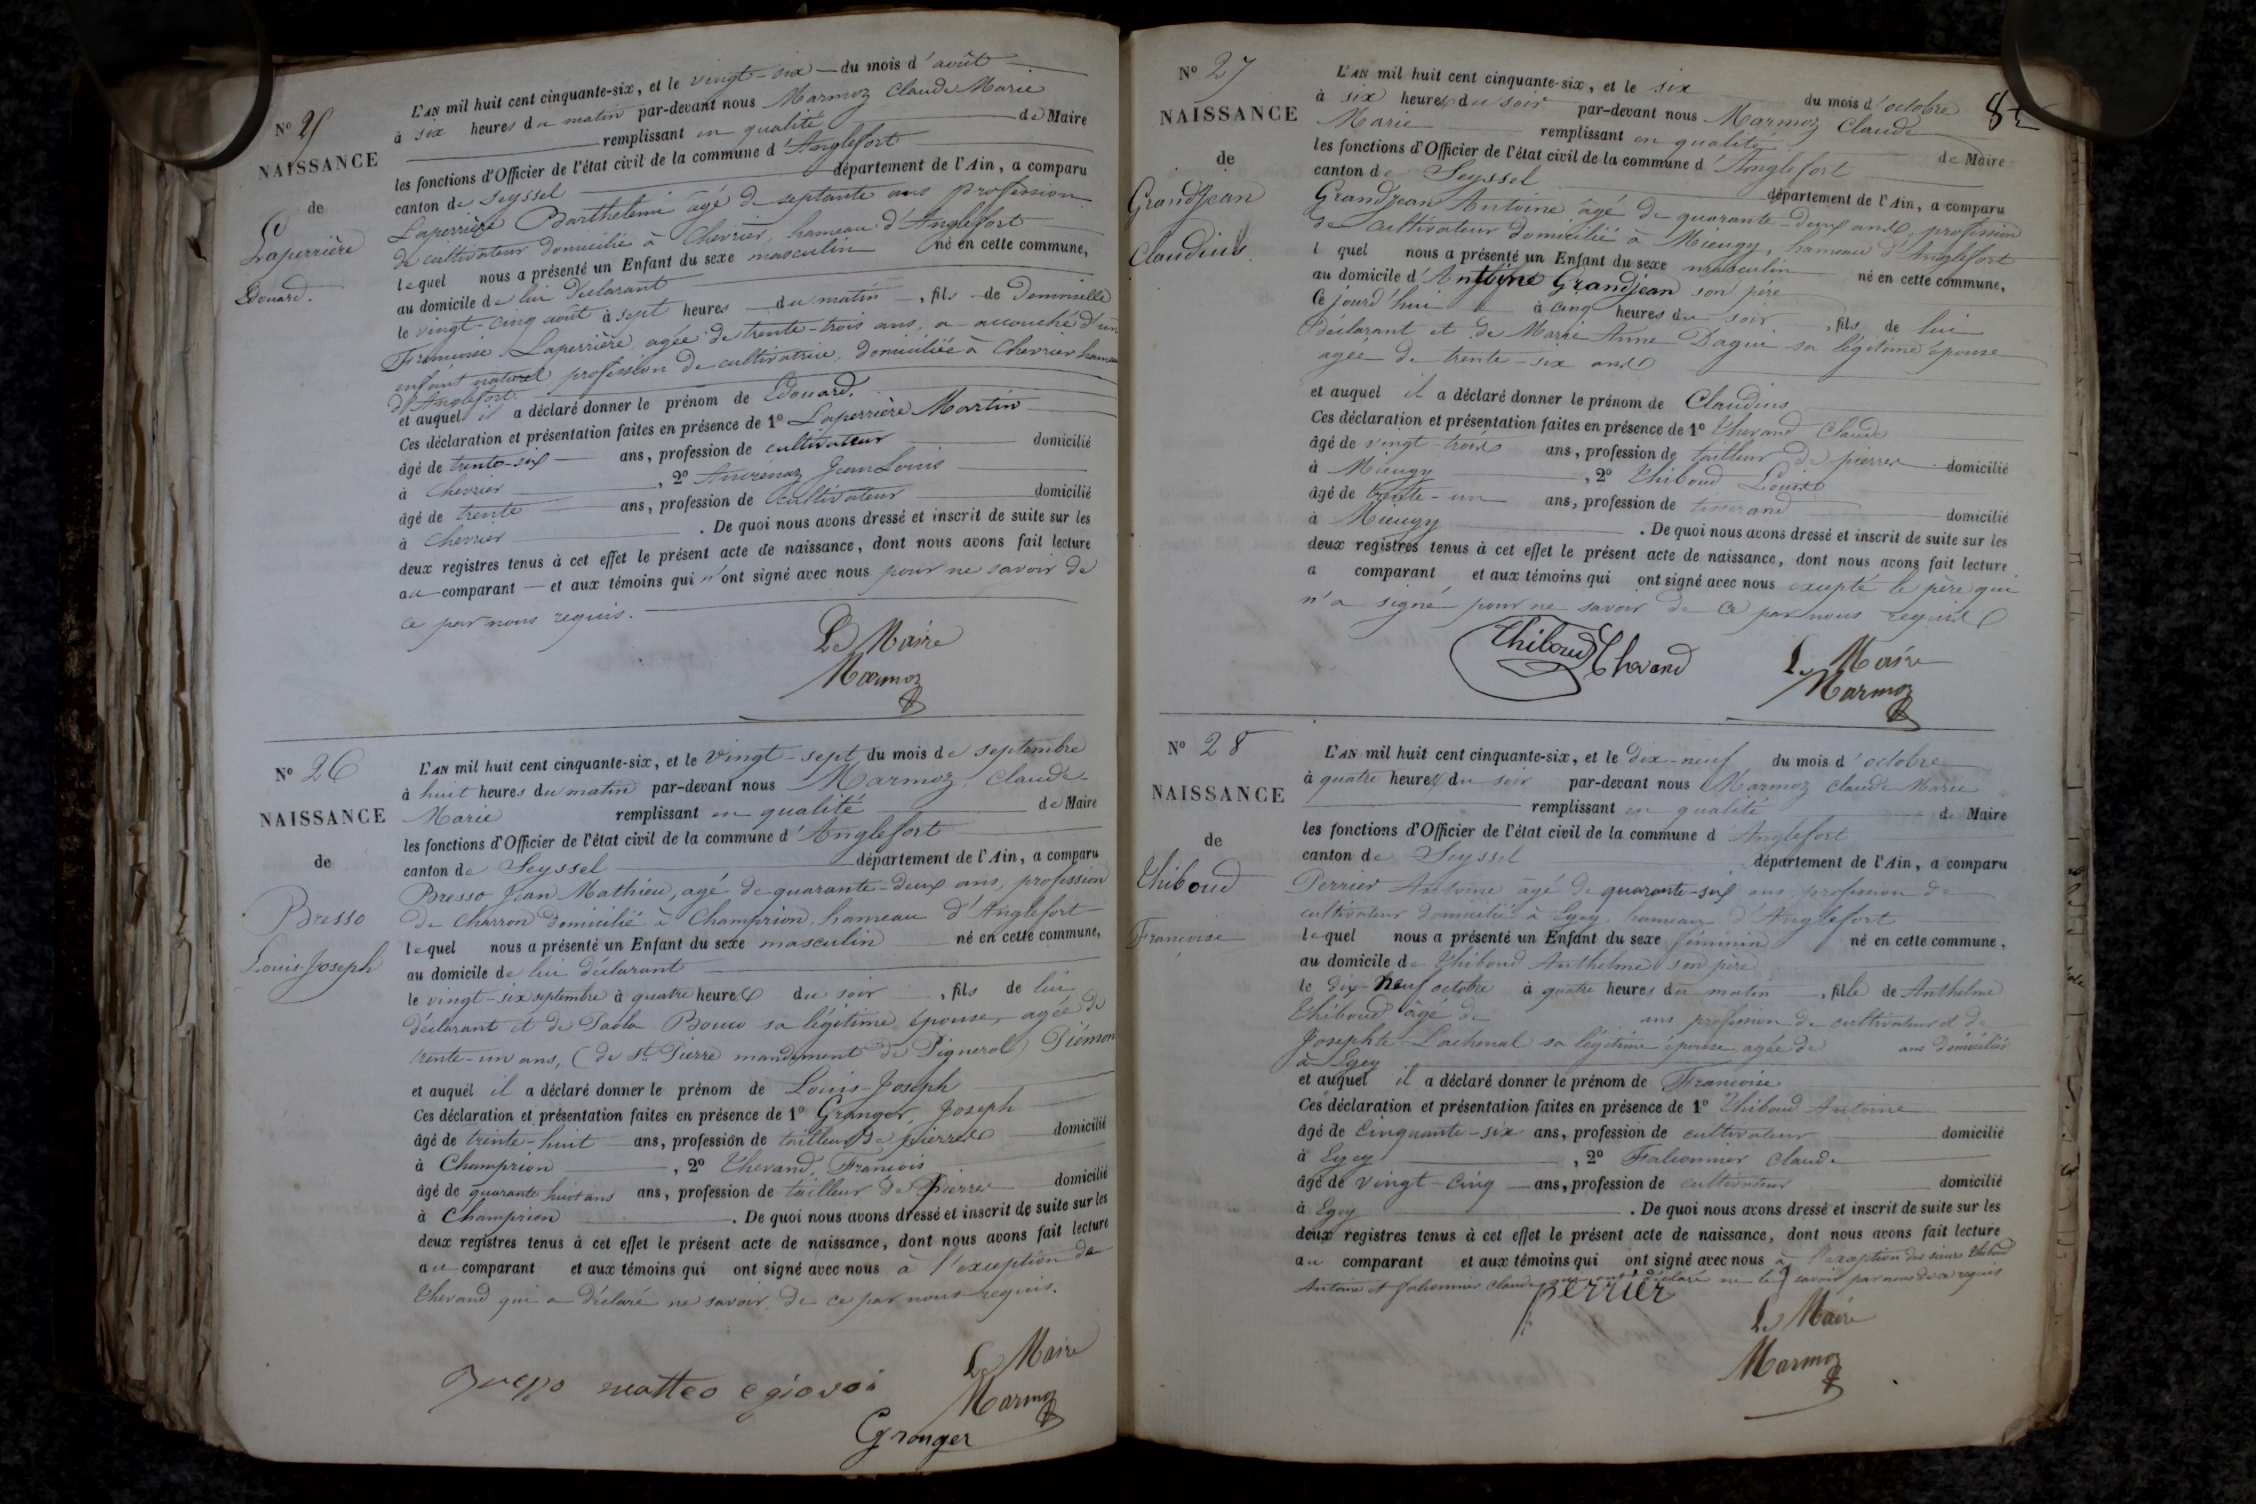 N° 25
NAISSANCE
de
Laperrière
Edouard.
L'AN mil huit cent cinquante-six, et le vingt-six du mois d'août
à six heures du matin par-devant nous Marmoz Claude Marie
remplissant en qualité de Maire
les fonctions d'Officier de l'état civil de la commune d'Anglefort
canton de Seyssel département de l'Ain, a comparu
Laperrière Barthelemi âgé de septante ans profession
de cultivateur domicilié à Chevrier, hameau d'Anglefort
lequel nous a présenté un Enfant du sexe masculin né en cette commune,
au domicile de lui déclarant
le vingt-cinq août à sept heures du matin, fils de Demoiselle
Françoise Laperrière agée de trente-trois ans, a accouché d'un
enfant naturel profession de cultivatrice, domiciliée à Chevrier hameau
d'Anglefort.
et auquel il a déclaré donner le prénom de Edouard.
Ces déclaration et présentation faites en présence de 1° Laperrière Martin
âgé de trente-six ans, profession de cultivateur domicilié
à Chevrier, 2° Jean Louis
âgé de trente ans, profession de cultivateur domicilié
à Chevrier. De quoi nous avons dressé et inscrit de suite sur les
deux registres tenus à cet effet le présent acte de naissance, dont nous avons fait lecture
au comparant et aux témoins qui n'ont signé avec nous pour ne savoir de
ce par nous requis.
Le Maire
Marmoz
N° 26
NAISSANCE
de
Bresso
Louis-Joseph
L'AN mil huit cent cinquante-six, et le vingt-sept du mois de septembre
à huit heures du matin par-devant nous Marmoz Claude
Marie remplissant en qualité de Maire
les fonctions d'Officier de l'état civil de la commune d'Anglefort
canton de Seyssel département de l'Ain, a comparu
Bresso Jean Mathieu, agé de quarante-deux ans, profession
de charron domicilié à Champrion, hameau d'Anglefort
lequel nous a présenté un Enfant du sexe masculin né en cette commune,
au domicile de lui déclarant
le vingt-six septembre à quatre heures du soir, fils de lui
déclarant et de Paola Bouco sa légitime épouse, agée de
trente-un ans, (de St. Pierre mandement de Pignerol) Piémon
et auquel il a déclaré donner le prénom de Louis-Joseph
Ces déclaration et présentation faites en présence de 1° Granger, Joseph
âgé de trente-huit ans, profession de tailleur de pierres domicilié
à Champrion, 2° Thevand, François
âgé de quarante huit ans ans, profession de tailleur de Pierres domicilié
à Champrion. De quoi nous avons dressé et inscrit de suite sur les
deux registres tenus à cet effet le présent acte de naissance, dont nous avons fait lecture
au comparant et aux témoins qui ont signé avec nous à l'exception de
Thevand qui a déclaré ne savoir de ce par nous requis.
matteo
Le Maire
Marmoz
Granger
8
N° 27
NAISSANCE
de
Grandjean
Claudius
L'AN mil huit cent cinquante-six, et le six du mois d'octobre
à six heures du soir par-devant nous Marmoz Claude
Marie remplissant en qualité de Maire
les fonctions d'Officier de l'état civil de la commune d'Anglefort
canton de Seyssel département de l'Ain, a comparu
Grandjean Antoine âgé de quarante-deux ans, profession
de cultivateur domicilié à Mieugy, hameau d'Anglefort
lquel nous a présenté un Enfant du sexe masculin né en cette commune,
au domicile d'Antoine Grandjean son père
Ce jourd'hui à cinq heures du soir, fils de lui
déclarant et de Marie Anne Dague sa légitime épouse
agée de trente-six ans
et auquel il a déclaré donner le prénom de Claudius
Ces déclaration et présentation faites en présence de 1° Thevand Claude
âgé de vingt-trois ans, profession de tailleur de pierres domicilié
à Mieugy, 2° Thiboud Louis
âgé de trente-un ans, profession de tisserand domicilié
à Mieugy. De quoi nous avons dressé et inscrit de suite sur les
deux registres tenus à cet effet le présent acte de naissance, dont nous avons fait lecture
a comparant et aux témoins qui ont signé avec nous excepté le père qui
n'a signé pour ne savoir de ce par nous requis
Thiboud Thevand
Le Maire
Marmoz
N° 28
NAISSANCE
de
Thiboud
Françoise
L'AN mil huit cent cinquante-six, et le dix-neuf du mois d'octobre
à quatre heures du soir par-devant nous Marmoz Claude Marie
remplissant en qualité de Maire
les fonctions d'Officier de l'état civil de la commune d Anglefort
canton de Seyssel département de l'Ain, a comparu
Perrier Antoine âgé de quarante-six ans profession de
cultivateur domicilié à Egey hameau d'Anglefort
lequel nous a présenté un Enfant du sexe féminin né en cette commune,
au domicile de Thiboud Anthelme son père
le dix-neuf octobre à quatre heures du matin, fille de Anthelme
Thiboud âgé de ans profession de cultivateur et de
Josephte Lachenal sa légitime épouse agée de ans domiciliés
à Egey
et auquel il a déclaré donner le prénom de Françoise
Ces déclaration et présentation faites en présence de 1° Thiboud Antoine
âgé de cinquante-six ans, profession de cultivateur domicilié
à Egey, 2° Falconnier Claude
âgé de vingt-cinq ans, profession de cultivateur domicilié
à Egey. De quoi nous avons dressé et inscrit de suite sur les
deux registres tenus à cet effet le présent acte de naissance, dont nous avons fait lecture
au comparant et aux témoins qui ont signé avec nous à l'exception des sieurs Thiboud
Antoine et Falconnier Claude qui ont déclaré ne le savoir par nous de ce requis
Perrier
Le Maire
Marmoz